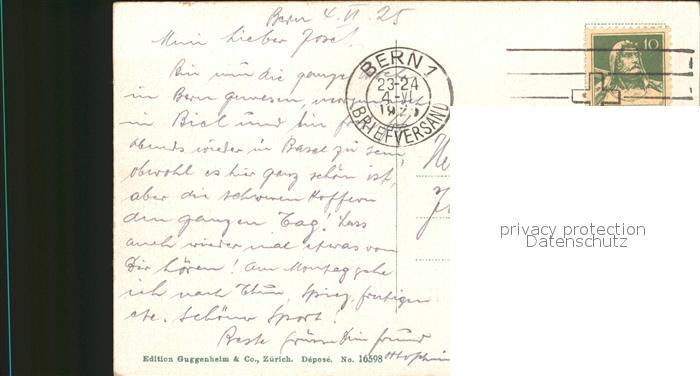 Bern 4. VI. 25
Mein lieber Josef.
Bin nun die ganze
in Bern gewesen,
in Biel und bin
abends wieder in Basel zu sein,
obwohl es hier ganz schön ist,
aber die schweren Koffern
den ganzen Tag! Lass
auch wieder mal etwas von
Dir hören! Am Montag gehe
ich nach Thun, Spiez, Frutigen
etc. Schöner Sport!
Beste Grüsse Dein Freund
BERN 1
23-24
4. VI
BRIEFVERSAND
10
privacy protection
Datenschutz
Edition Guggenheim & Co., Zürich. Déposé. No. 16598